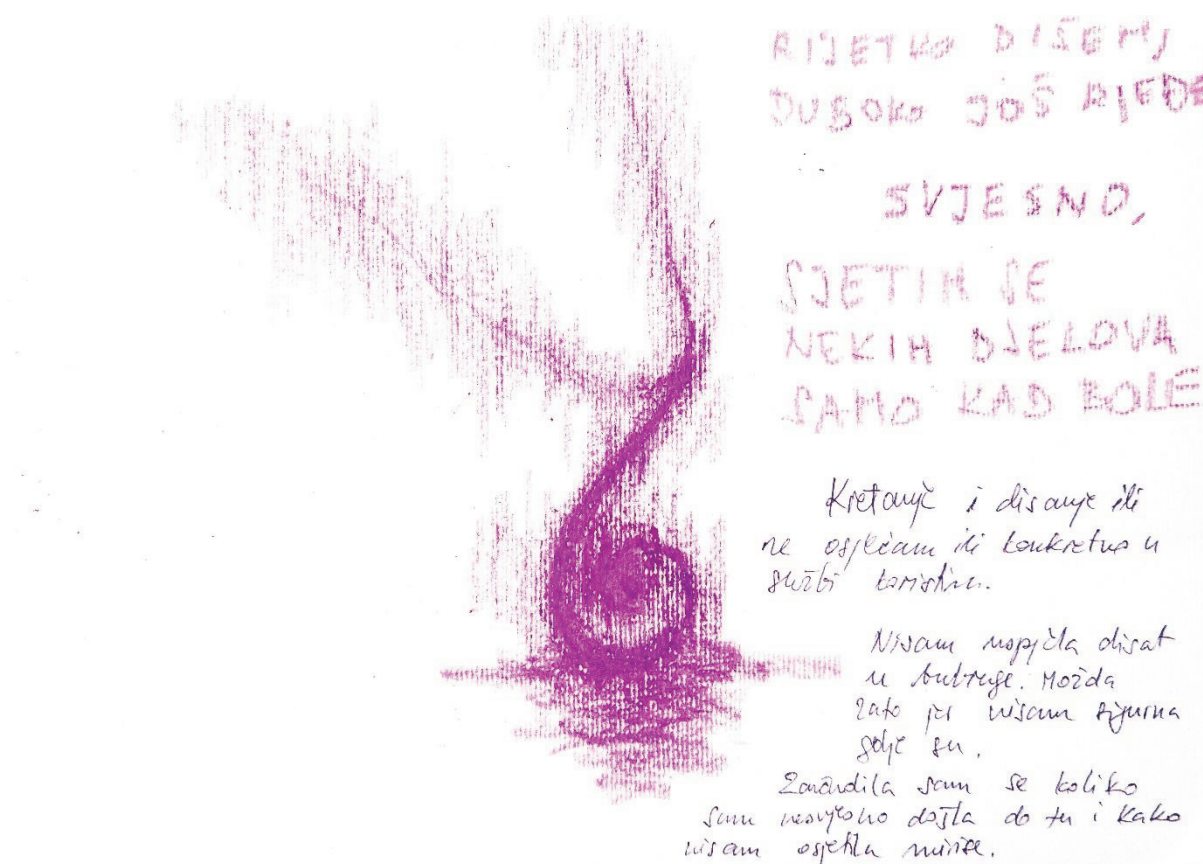 RIJETKO DIŠEM,
DUBOKO JOŠ RJEĐE
SVJESNO,
SJETIM SE
NEKIH DJELOVA
SAMO KAD BOLE
Kretanje i disanje ili
ne osjećam ili konkretno u
službi
Nisam uspjela disat
u bubrege. Možda
zato jer nisam sigurna
gdje su.
Začudila sam se koliko
sam nesvjesno došla do tu i kako
nisam osjetila mirise.